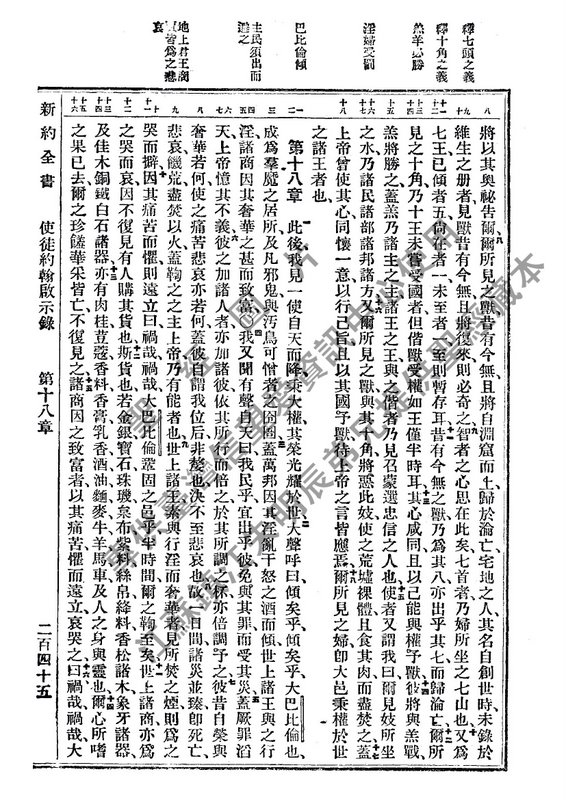 釋七頭之義
釋十角之義
羔羊必勝
淫婦受罰
巴比倫傾
主民須出而
遠之
地上君王商
賈皆為之悲
哀
將以其奧祕告爾爾所見之獸昔有今無且將自淵窟而上歸於淪亡宅地之人其名自創世時未錄於
維生之册者見獸昔有今無且將復來則必奇之智者之心思在此矣七首者乃婦所坐之七山也又為
七王已傾者五尚在者一未至者一至則暫存耳昔有今無之獸乃為其八亦出乎其七而歸淪亡爾所
見之十角乃十王未嘗受國者但偕獸受權如王僅半時耳其心咸同且以己能與權予獸彼將與羔戰
羔將勝之蓋羔乃諸主之主諸王之王與之偕者乃見召蒙選忠信之人也使者又謂我曰爾見妓所坐
之水乃諸民諸部諸邦諸方又爾所見之獸與其十角將惡此妓使之荒墟裸體且食其肉而盡焚之蓋
上帝曾使其心同懷一意以行己旨且以其國予獸待上帝之言皆應焉爾所見之婦即大邑秉權於世
之諸王者也
第十八章 此後我見一使自天而降秉大權其榮光耀於世大聲呼曰傾矣乎傾矣乎大巴比倫也
成為羣魔之居所及凡邪鬼與汚鳥可憎者之囹圄蓋萬邦因其淫亂干怒之酒而傾世上諸王與之行
淫諸商因其奢華之甚而致富我又聞有聲自天曰我民乎宜出乎彼免與其罪而受其災蓋厥罪滔
天上帝憶其不義彼之加諸人者亦加諸彼依其所行而倍之於其所調之杯亦倍調予之彼昔自榮與
奢華若何使之痛苦悲哀亦若何蓋彼自謂我位后非嫠也決不至悲哀也故一日間諸災並臻即死亡
悲哀饑荒盡焚以火蓋鞫之之主上帝乃有能者也世上諸王素與行淫而奢華者見所焚之煙則為之
哭而擗因其痛苦而懼則遠立曰禍哉禍哉大巴比倫鞏固之邑乎半時間爾之鞫至矣世上諸商亦為
之哭而哀因不復見有人購其貨也斯貨也若金銀寶石珠璣枲布紫布絲帛絳料香松諸木象牙諸器
及佳木銅鐵白石諸器亦有肉桂荳蔻香料香膏乳香酒油麵麥牛羊馬車及人之身與靈也爾心所嗜
之果已去爾之珍饈華采皆亡不復見之諸商因之致富者以其痛苦懼而遠立哀哭之曰禍哉禍哉大
新約全書 使徒約翰啟示錄 第十八章 二百四十五